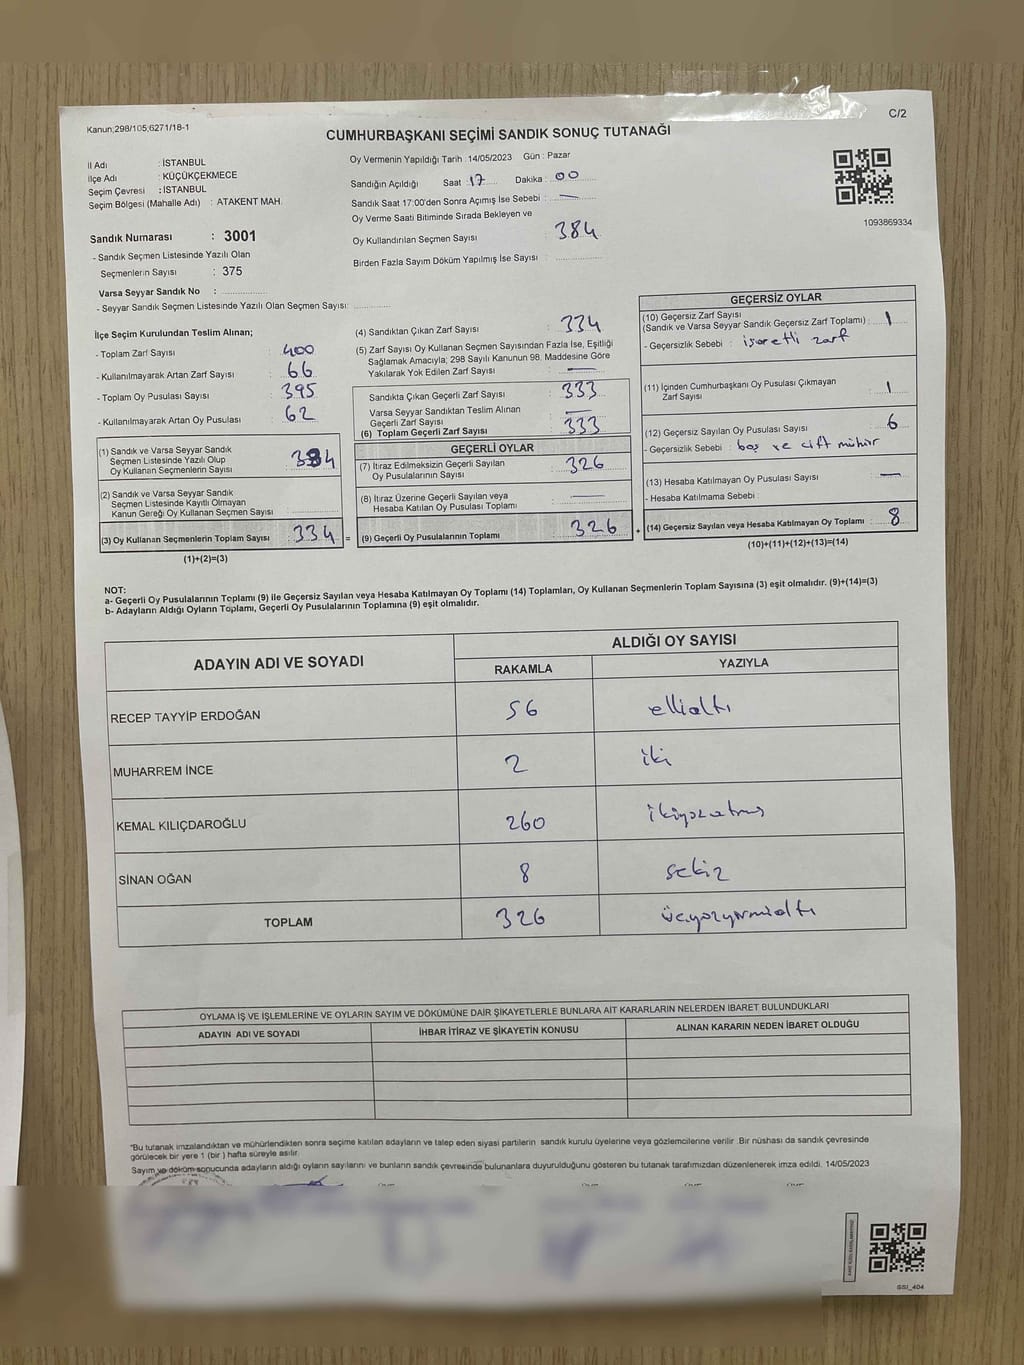 Kanun;298/105;6271/18-1
C/2
CUMHURBAŞKANI SEÇİMİ SANDIK SONUÇ TUTANAĞI
İl Adı : İSTANBUL
İlçe Adı : KÜÇÜKÇEKMECE
Seçim Çevresi : İSTANBUL
Seçim Bölgesi (Mahalle Adı) : ATAKENT MAH.
Sandık Numarası : 3001
- Sandık Seçmen Listesinde Yazılı Olan
Seçmenlerin Sayısı : 375
Varsa Seyyar Sandık No :
- Seyyar Sandık Seçmen Listesinde Yazılı Olan Seçmen Sayısı:
Oy Vermenin Yapıldığı Tarih : 14/05/2023 Gün : Pazar
Sandığın Açıldığı Saat : 17 Dakika : 00
Sandık Saat 17:00'den Sonra Açımış İse Sebebi : —
Oy Verme Saati Bitiminde Sırada Bekleyen ve
Oy Kullandırılan Seçmen Sayısı : 384
Birden Fazla Sayım Döküm Yapılmış İse Sayısı :
1093869334
İlçe Seçim Kurulundan Teslim Alınan;
- Toplam Zarf Sayısı : 400
- Kullanılmayarak Artan Zarf Sayısı : 66
- Toplam Oy Pusulası Sayısı : 395
- Kullanılmayarak Artan Oy Pusulası : 62
(1) Sandık ve Varsa Seyyar Sandık
Seçmen Listesinde Yazılı Olup
Oy Kullanan Seçmenlerin Sayısı : 334
(2) Sandık ve Varsa Seyyar Sandık
Seçmen Listesinde Kayıtlı Olmayan
Kanun Gereği Oy Kullanan Seçmen Sayısı :
(3) Oy Kullanan Seçmenlerin Toplam Sayısı : 334 =
(1)+(2)=(3)
(4) Sandıktan Çıkan Zarf Sayısı : 334
(5) Zarf Sayısı Oy Kullanan Seçmen Sayısından Fazla İse, Eşitliği
Sağlamak Amacıyla; 298 Sayılı Kanunun 98. Maddesine Göre
Yakılarak Yok Edilen Zarf Sayısı : —
Sandıkta Çıkan Geçerli Zarf Sayısı : 333
Varsa Seyyar Sandıktan Teslim Alınan
Geçerli Zarf Sayısı : —
(6) Toplam Geçerli Zarf Sayısı : 333
GEÇERLİ OYLAR
(7) İtiraz Edilmeksizin Geçerli Sayılan
Oy Pusulalarının Sayısı : 326
(8) İtiraz Üzerine Geçerli Sayılan veya
Hesaba Katılan Oy Pusulası Toplamı : —
(9) Geçerli Oy Pusulalarının Toplamı : 326 +
GEÇERSİZ OYLAR
(10) Geçersiz Zarf Sayısı
(Sandık ve Varsa Seyyar Sandık Geçersiz Zarf Toplamı) : 1
- Geçersizlik Sebebi : işaretli zarf
(11) İçinden Cumhurbaşkanı Oy Pusulası Çıkmayan
Zarf Sayısı : 1
(12) Geçersiz Sayılan Oy Pusulası Sayısı : 6
- Geçersizlik Sebebi : boş ve çift mühür
(13) Hesaba Katılmayan Oy Pusulası Sayısı : —
- Hesaba Katılmama Sebebi :
(14) Geçersiz Sayılan veya Hesaba Katılmayan Oy Toplamı : 8
(10)+(11)+(12)+(13)=(14)
NOT:
a- Geçerli Oy Pusulalarının Toplamı (9) ile Geçersiz Sayılan veya Hesaba Katılmayan Oy Toplamı (14) Toplamları, Oy Kullanan Seçmenlerin Toplam Sayısına (3) eşit olmalıdır. (9)+(14)=(3)
b- Adayların Aldığı Oyların Toplamı, Geçerli Oy Pusulalarının Toplamına (9) eşit olmalıdır.
ADAYIN ADI VE SOYADI
ALDIĞI OY SAYISI
RAKAMLA YAZIYLA
RECEP TAYYİP ERDOĞAN 56 ellialtı
MUHARREM İNCE 2 iki
KEMAL KILIÇDAROĞLU 260 ikiyüzatmış
SİNAN OĞAN 8 sekiz
TOPLAM 326 üçyüzyirmialtı
OYLAMA İŞ VE İŞLEMLERİNE VE OYLARIN SAYIM VE DÖKÜMÜNE DAİR ŞİKAYETLERLE BUNLARA AİT KARARLARIN NELERDEN İBARET BULUNDUKLARI
ADAYIN ADI VE SOYADI İHBAR İTİRAZ VE ŞİKAYETİN KONUSU ALINAN KARARIN NEDEN İBARET OLDUĞU
*Bu tutanak imzalandıktan ve mühürlendikten sonra seçime katılan adayların ve talep eden siyasi partilerin sandık kurulu üyelerine veya gözlemcilerine verilir. Bir nüshası da sandık çevresinde
görülecek bir yere 1 (bir ) hafta süreyle asılır.
Sayım ve döküm sonucunda adayların aldığı oyların sayılarını ve bunların sandık çevresinde bulunanlara duyurulduğunu gösteren bu tutanak tarafımızdan düzenlenerek imza edildi. 14/05/2023
GSI_404